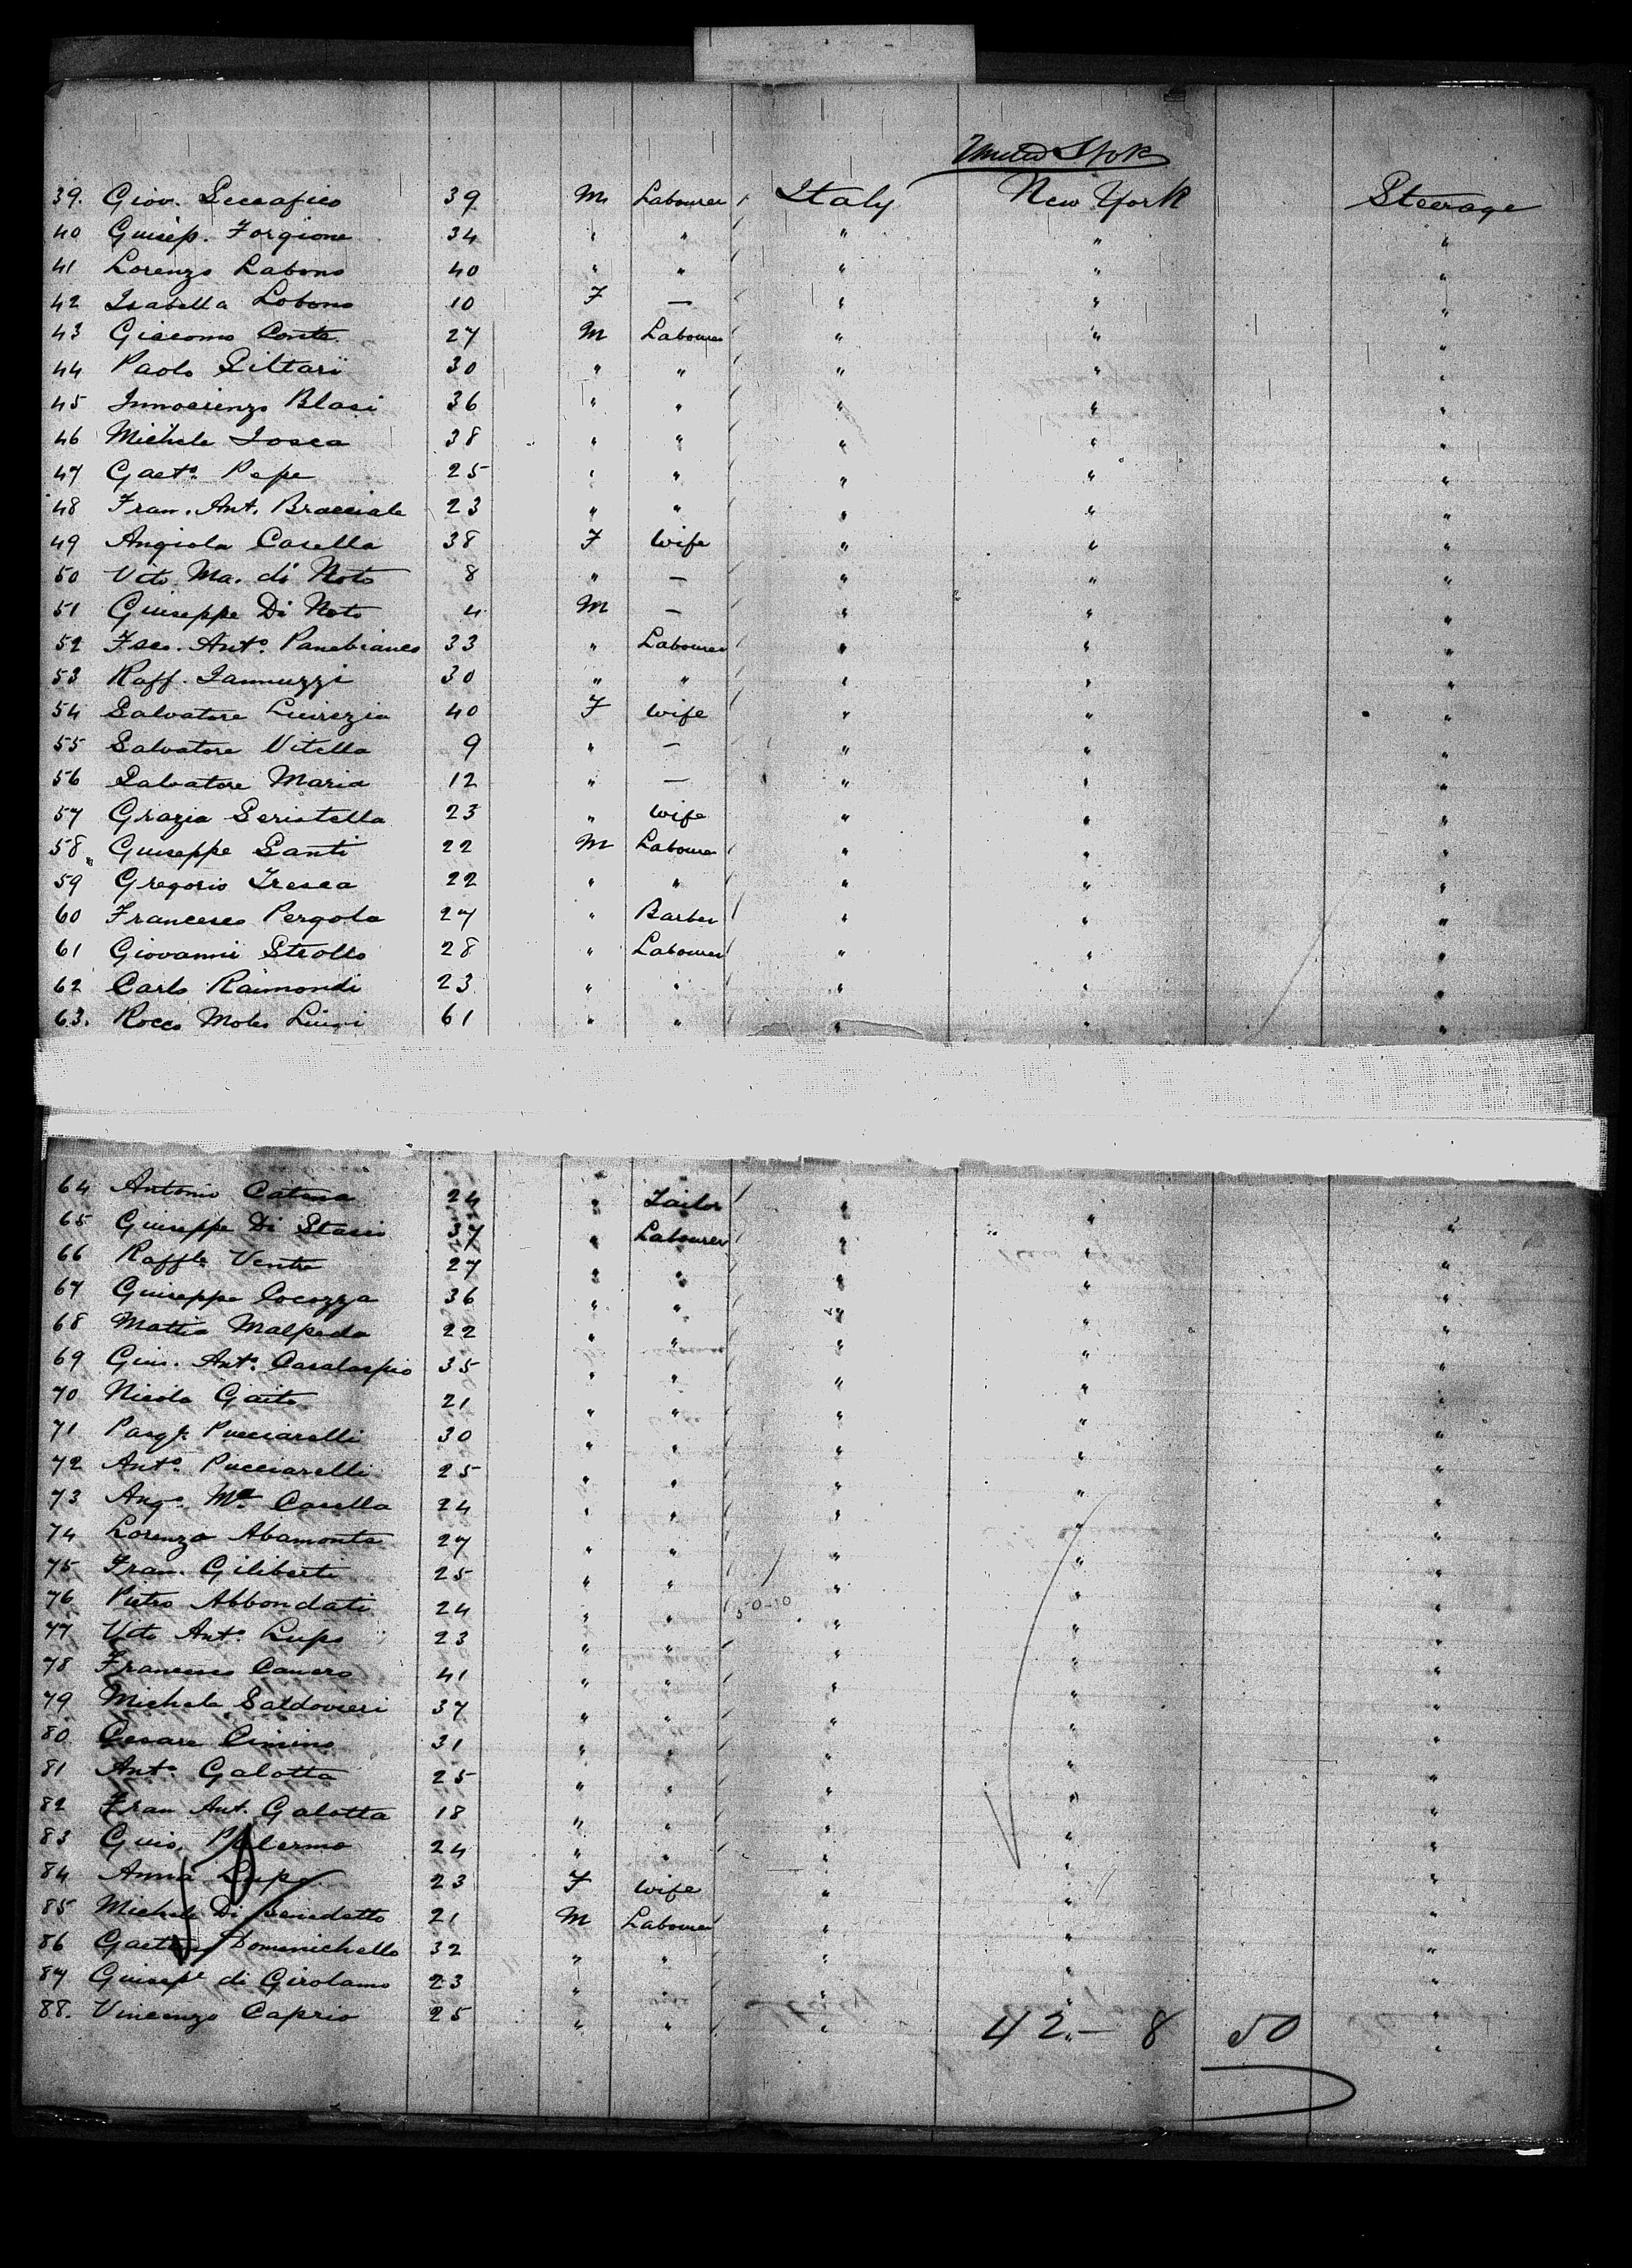 United States
39. Giov. Seccafico 39 M Labourer Italy New York Steerage
40 Guisep. Forgione 34 " " " " "
41 Lorenzo Labono 40 " " " " "
42 Isabella Lobono 10 F — " " "
43 Giacomo Conte 27 M Labourer " " "
44 Paolo Siltari 30 " " " " "
45 Innocienzo Blasi 36 " " " " "
46 Michele Iosca 38 " " " " "
47 Gaet.º Pepe 25 " " " " "
48 Fran. Ant. Bracciale 23 " " " " "
49 Angiola Casella 38 F Wife " " "
50 Vito Ma. di Noto 8 " — " " "
51 Giuseppe Di Noto 4 M — " " "
52 Fsco. Ant.º Panebianco 33 " Labourer " " "
53 Raff. Iannuzzi 30 " " " " "
54 Salvatore Lucrezia 40 F Wife " " "
55 Salvatore Vitella 9 " — " " "
56 Salvatore Maria 12 " — " " "
57 Grazia Seristella 23 " Wife " " "
58 Guiseppe Santi 22 M Labourer " " "
59 Gregorio Tresca 22 " " " " "
60 Francesco Pergola 27 " Barber " " "
61 Giovanni Strollo 28 " Labourer " " "
62 Carlo Raimondi 23 " " " " "
63. Rocco Moles Luigi 61 " " " " "
64 Antonio Catena 24 " Tailor " "
65 Guiseppe Di Stasio 37 " Labourer " " "
66 Raffle Vento 27 " " " " "
67 Guiseppe Cocozza 36 " " " " "
68 Mattia Malpede 22 " " " " "
69 Gius. Ant.º 35 " " " " "
70 Nicola Gaito 21 " " " " "
71 Pasqle Pucciarelli 30 " " " " "
72 Ant.º Pucciarelli 25 " " " " "
73 Ang.º Ma Casella 24 " " " " "
74 Lorenzo Abamonte 27 " " " " "
75 Fran. Giliberti 25 " " " " "
76 Pietro Abbondati 24 " " 50-10 " " "
77 Vito Ant.º Lupo 23 " " " " "
78 Francesco Canero 41 " " " " "
79 Michele Saldovieri 37 " " " " "
80. Cesare Cimino 31 " " " " "
81 Ant.º Galotta 25 " " " " "
82 Fran Ant. Galotta 18 " " " " "
83 Guis. Palermo 24 " " " " "
84 Anna Lupo 23 F Wife " " "
85 Michele Di Benedetto 21 M Labourer " " "
86 Gaetano Domenichello 32 " " " " "
87 Guisepe di Girolamo 23 " " " " "
88. Vincenzo Caprio 25 " " " "
42.— 8 50